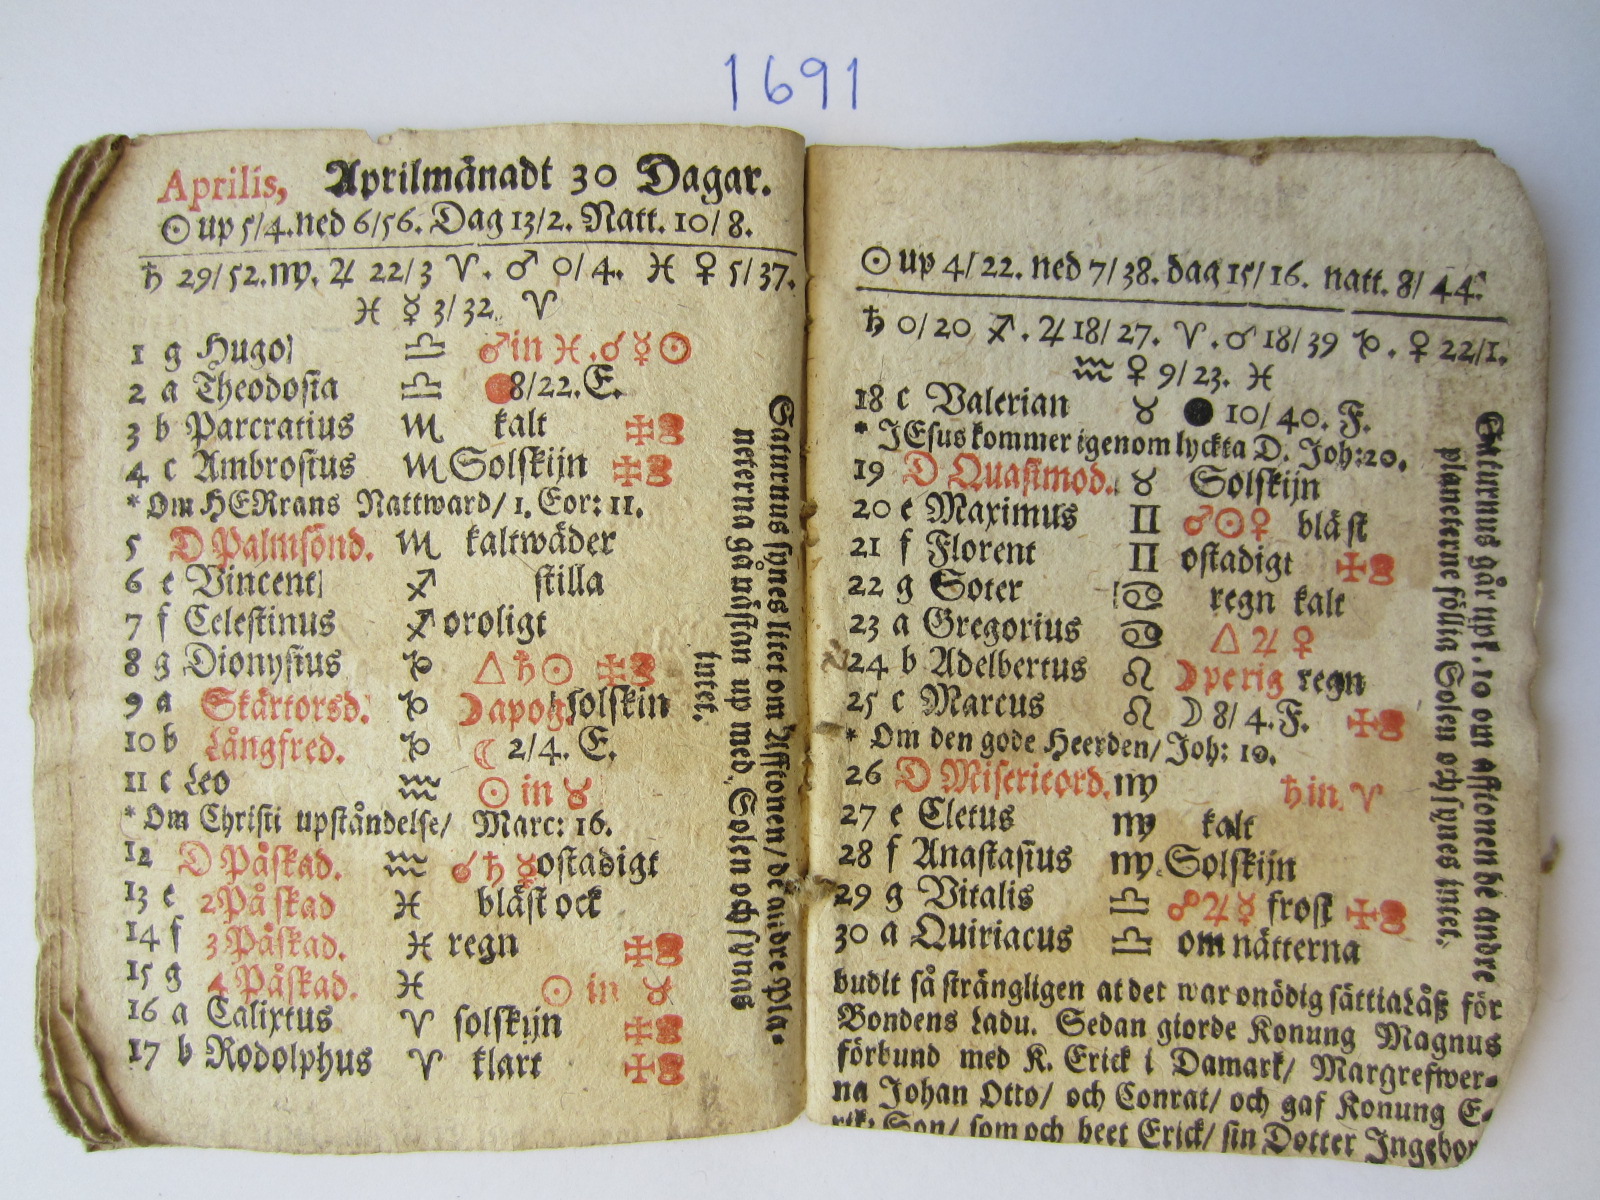 1691
Aprilis, Aprilmånadt 30 Dagar.
☉ up 5/4. ned 6/56. Dag 13/2. Natt. 10/8.
♄ 29/52. ♍. ♃ 22/3 ♈. ♂ 0/4. ♓ ♀ 5/37.
♓ ☿ 3/32. ♈
1 g Hugo ♎ ♂ in ♓. ☌ ☿ ☉
2 a Theodosia ♎ 8/22. E.
3 b Parcratius ♏ kalt ✠
4 c Ambrosius ♏ Solskijn ✠
* Om HERrans Nattward/ 1. Cor: 11.
5 D Palmsönd. ♏ kaltwäder
6 e Vincent ♐ stilla
7 f Celestinus ♐ oroligt
8 g Dionysius ♑ △ ♄ ☉ ✠
9 a Skärtorsd. ♑ ☽ apog solskin
10 b Långfred. ♑ ☾ 2/4. E.
11 c Leo ♒ ☉ in ♉
* Om Christi upståndelse/ Marc: 16.
12 D Påskad. ♒ ☌ ♄ ☿ ostadigt
13 e 2 Påskad ♓ blåst ock
14 f 3 Påskad. ♓ regn ✠
15 g 4 Påskad. ♓ ☉ in ♉
16 a Calixtus ♈ solskijn ✠
17 b Rodolphus ♈ klart ✠
Saturnus synes litet om Afftonen/ de andre Pla-
neterna gå nästan up med Solen och synas
intet.
☉ up 4/22. ned 7/38. dag 15/16. natt. 8/44.
♄ 0/20 ♐. ♃ 18/27. ♈. ♂ 18/39 ♑. ♀ 22/1.
♒ ♀ 9/23. ♓
18 c Valerian ♉ ● 10/40. F.
* JEsus kommer igenom lyckta D. Joh: 20.
19 D Quasimod. ♉ Solskijn
20 e Maximus ♊ ♂ ☉ ♀ blåst
21 f Florent ♊ ostadigt ✠
22 g Soter ♋ regn kalt
23 a Gregorius ♋ △ ♃ ♀
24 b Adelbertus ♌ ☽ perig regn
25 c Marcus ♌ ☽ 8/4. F. ✠
* Om den gode Heerden/ Joh: 10.
26 D Misericord. ♍ ♄ in ♈
27 e Cletus ♍ kalt
28 f Anastasius ♍ Solskijn
29 g Vitalis ♎ ☍ ♃ ☿ frost ✠
30 a Quiriacus ♎ om nätterna
Saturnus går up k. 10 om afftonen de andre
planeterne föllia Solen och synes intet.
budit så strängligen at det war onödig sättia Låß för
Bondens Ladu. Sedan giorde Konung Magnus
förbund med K. Erick i Damark/ Margrefwer-
na Johan Otto/ och Conrat/ och gaf Konung E-
Son/ som och heet Erick/ sin Dotter Ingebor